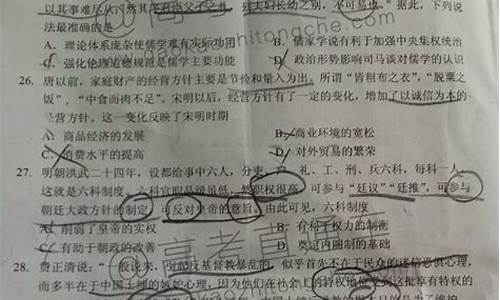 法最准确的是
A. 理论体系庞杂使儒学难有实际功团
B. 儒家学说有利于加强中央集权统治
D. 政治形势影响司马谈对儒学的认识
26. 唐以前，家庭财产的经营方针主要是节俭和量入为出。所谓“皆粗布之衣”，“脱粟之
饭”，“中食而肉不足”。宋明以后，经营方针有了一定的变化，增加了以诚信为本的
经营方针。这一变化反映了宋明时期
A. 商品经济的发展
B. 商业环境的宽松
C. 消费水平的提高
D. 对外贸易的繁荣
27. 明朝洪武二十四年，设都给事中六人，分吏、户、礼、工、刑、兵六科，每科一人，
这就是六科制度。六科官职品级虽低，然职权很高，可参与“廷议”“廷推”，可参与
朝廷大政方针的制定，可反对皇帝的意旨。由此可见，六科制度
A. 削弱了皇帝的实权
B. 有利于权力的制衡
C. 有助于朝政的改善
D. 奠定内阁制的基础
28. 费正清说：“一般说来，对起反基督教暴乱的，似乎首先不在于民众的迷信恐惧心理，
而多半在于中国士绅的嫉妒心理，因为他们在社会上的特权地位受到这批享有特权的